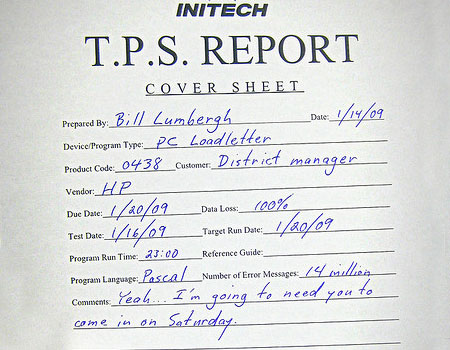 INITECH
T.P.S. REPORT
COVER SHEET
Prepared By: Bill Lumbergh Date: 1/14/09
Device/Program Type: PC Loadletter
Product Code: 0438 Customer: District manager
Vendor: HP
Due Date: 1/20/09 Data Loss: 100%
Test Date: 1/16/09 Target Run Date: 1/20/09
Program Run Time: 23:00 Reference Guide:
Program Language: Pascal Number of Error Messages: 14 million
Comments: Yeah... I'm going to need you to
come in on Saturday.